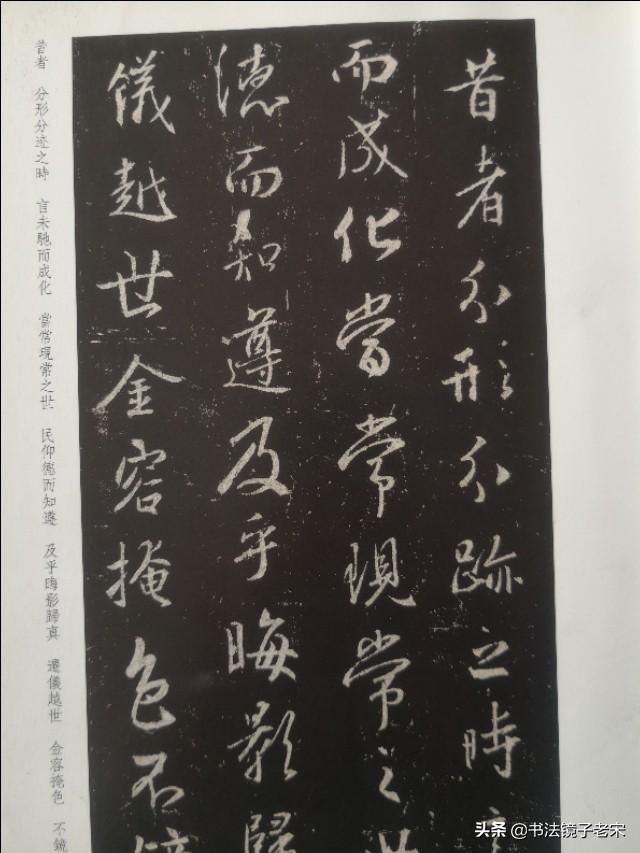 昔者分形分跡之時
而成化當常現常之世
德而知遵及乎晦影歸
儀越世金容掩色不
昔者 分形分迹之時 言未馳而成化 當常現常之世 民仰德而知遵 及乎晦影歸真 遷儀越世 金容掩色 不鏡
头条 @书法镜子老宋